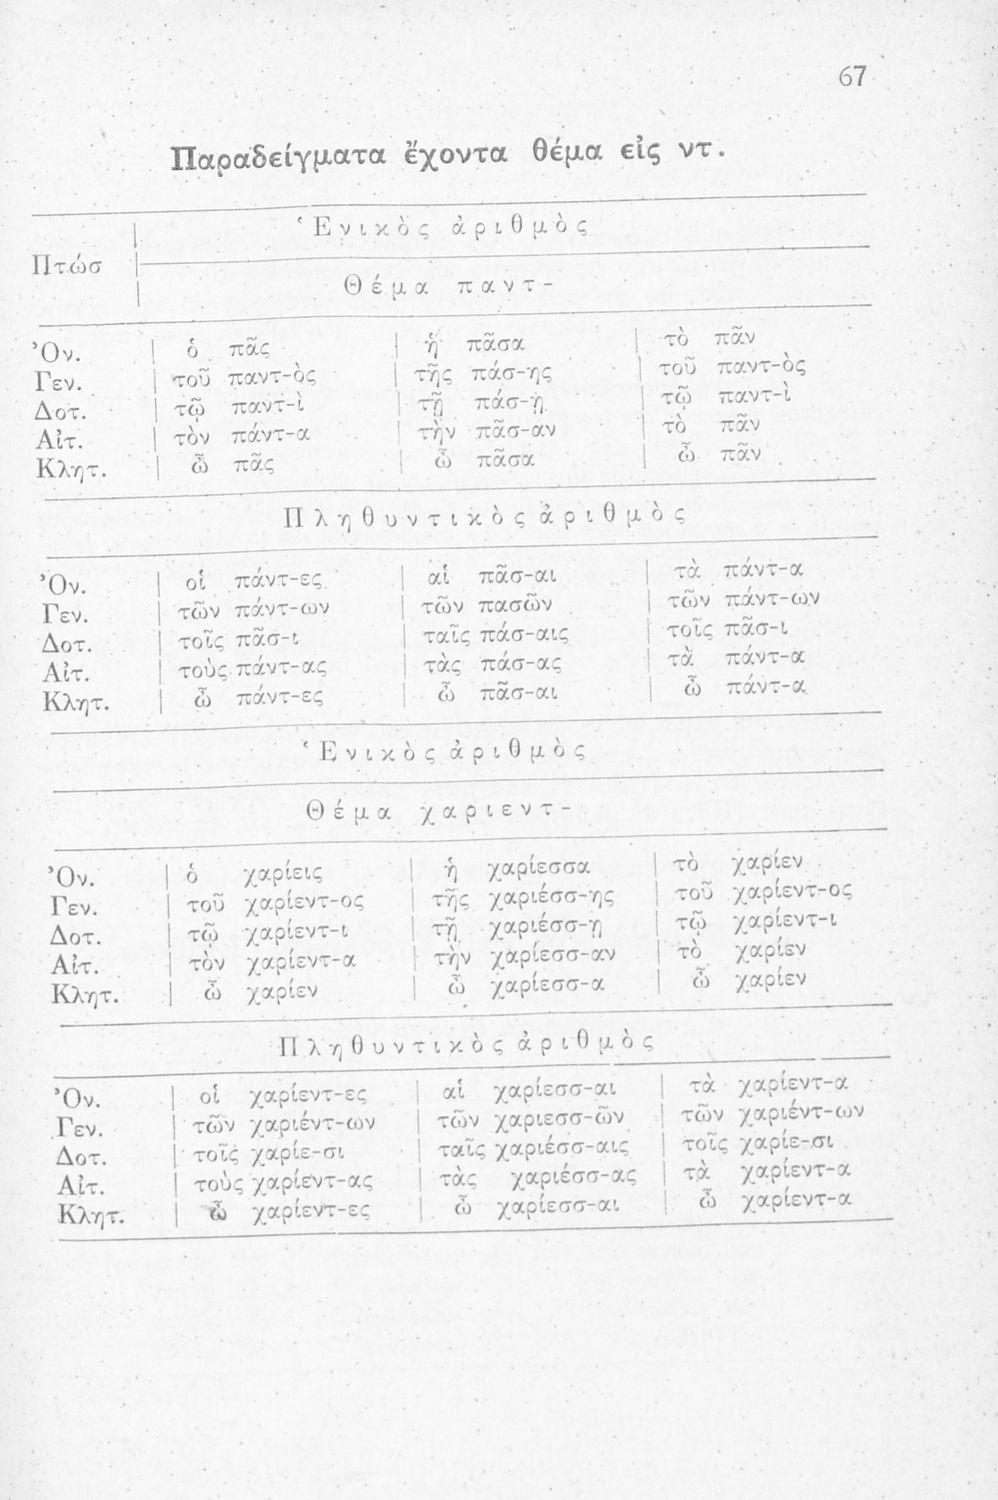 67
Παραδείγματα ἔχοντα θέμα εἰς ντ.
Ἑνικὸς ἀριθμὸς
Πτώσ
Θέμα παντ-
Ὀν. ὁ πᾶς ἡ πᾶσα τὸ πᾶν
Γεν. τοῦ παντ-ὸς τῆς πάσ-ης τοῦ παντ-ὸς
Δοτ. τῷ παντ-ὶ τῇ πάσ-ῃ τῷ παντ-ὶ
Αἰτ. τὸν πάντ-α τὴν πᾶσ-αν τὸ πᾶν
Κλητ. ὦ πᾶς ὦ πᾶσα ὦ πᾶν
Πληθυντικὸς ἀριθμὸς
Ὀν. οἱ πάντ-ες αἱ πᾶσ-αι τὰ πάντ-α
Γεν. τῶν πάντ-ων τῶν πασῶν τῶν πάντ-ων
Δοτ. τοῖς πᾶσ-ι ταῖς πάσ-αις τοῖς πᾶσ-ι
Αἰτ. τοὺς πάντ-ας τὰς πάσ-ας τὰ πάντ-α
Κλητ. ὦ πάντ-ες ὦ πᾶσ-αι ὦ πάντ-α
Ἑνικὸς ἀριθμὸς
Θέμα χαριεντ-
Ὀν. ὁ χαρίεις ἡ χαρίεσσα τὸ χαρίεν
Γεν. τοῦ χαρίεντ-ος τῆς χαριέσσ-ης τοῦ χαρίεντ-ος
Δοτ. τῷ χαρίεντ-ι τῇ χαριέσσ-ῃ τῷ χαρίεντ-ι
Αἰτ. τὸν χαρίεντ-α τὴν χαρίεσσ-αν τὸ χαρίεν
Κλητ. ὦ χαρίεν ὦ χαρίεσσ-α ὦ χαρίεν
Πληθυντικὸς ἀριθμὸς
Ὀν. οἱ χαρίεντ-ες αἱ χαρίεσσ-αι τὰ χαρίεντ-α
Γεν. τῶν χαριέντ-ων τῶν χαριεσσ-ῶν τῶν χαριέντ-ων
Δοτ. τοῖς χαρίε-σι ταῖς χαριέσσ-αις τοῖς χαρίε-σι
Αἰτ. τοὺς χαρίεντ-ας τὰς χαριέσσ-ας τὰ χαρίεντ-α
Κλητ. ὦ χαρίεντ-ες ὦ χαρίεσσ-αι ὦ χαρίεντ-α